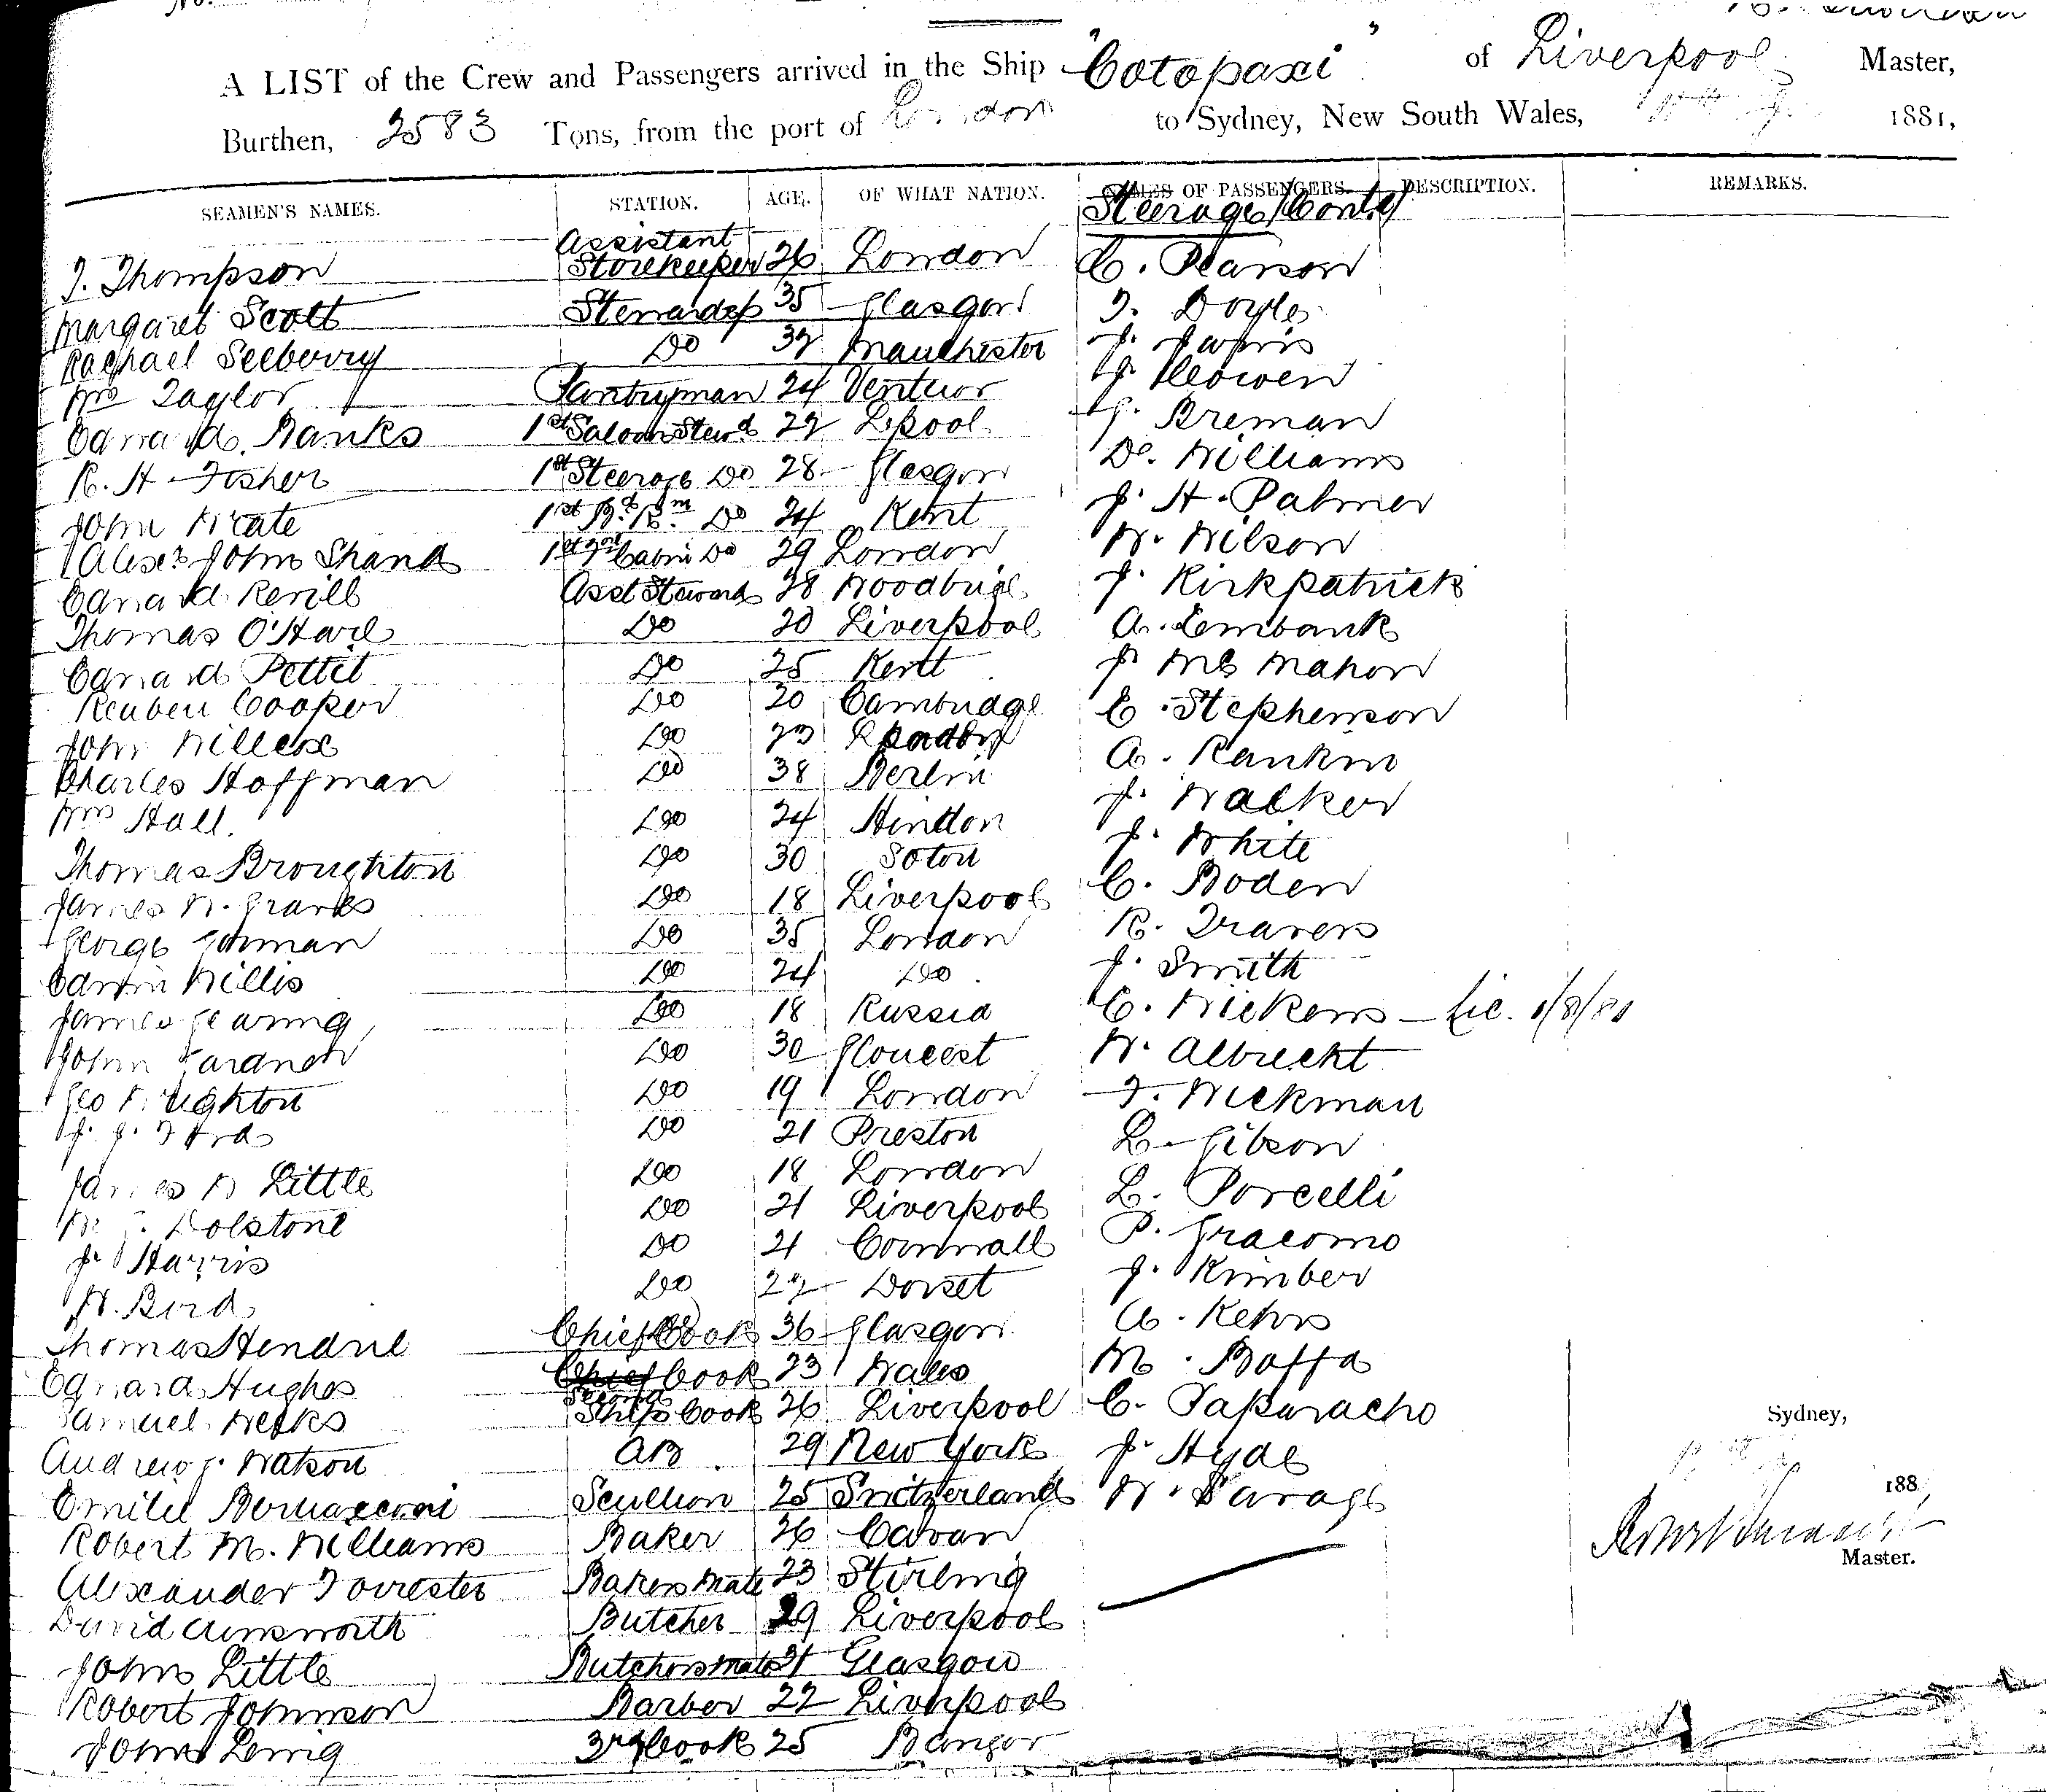 No.
A LIST of the Crew and Passengers arrived in the Ship "Cotopaxi" of Liverpool Master,
Burthen, 2583 Tons, from the port of London to Sydney, New South Wales, 1881,
SEAMEN'S NAMES. STATION. AGE. OF WHAT NATION. NAMES OF PASSENGERS. DESCRIPTION. REMARKS.
Steerage/Contd/
T. Thompson Assistant Storekeeper 26 London C. Pearson
Margaret Scott Stewardess 35 Glasgow T. Doyle
Rachael Seeberry Do 32 Manchester J. Jarvis
Wm Taylor Pantryman 24 Ventnor J.
Edward Banks 1st Saloon Stewd 22 Lpool J. Breman
R. H. Fisher 1st Steerage Do 28 Glasgow D. Williams
John Neate 1st Do 24 Kent J. H. Palmer
Alexr John Shand 1st 2nd Cabin Do 29 London W. Wilson
Edward Revill Asst Steward 28 Woodbridge J. Kirkpatrick
Thomas O'Hare Do 20 Liverpool A. Lembank
Edward Pettit Do 25 Kent J. Mc Mahon
Reuben Cooper Do 20 Cambridge E. Stephenson
John Do 23 London A. Rankin
Charles Hoffman Do 38 Berlin J. Walker
Wm Hall. Do 24 Hindon J. White
Thomas Broughton Do 30 Soton C. Boden
James W. Do 18 Liverpool R. Travers
George Do 35 London J. Smith
Edwin Willis Do 24 Do C. Wickens — Lic. 1/8/81
James Gearing Do 18 Russia W. Albrecht
John Gardner Do 30 Gloucest T. Wickman
Geo Do 19 London L. Gibson
J. J. Ford Do 21 Preston L. Porcelli
James W Little Do 18 London P. Giacomo
W. Dolstone Do 21 Liverpool J. Kimber
J. Harris Do 21 Cornwall A. Kehrs
W. Bird Do 22 Dorset M. Boffa
Thomas Hendrie Chief Cook 36 Glasgow C. Paparacho
Edward Hughes Chief Second Cook 23 Wales J. Hyde
Samuel Weeks Ships Cook 26 Liverpool W. Savage
Andrew J. Watson AB 29 New York
Emilie Bernasconi Scullion 25 Switzerland
Robert M. Williams Baker 26 Cavan
Alexander Forrester Bakers Mate 23 Stirling
David Ainsworth Butcher 29 Liverpool
John Little Butchers mate 21 Glasgow
Robert Johnson Barber 22 Liverpool
John 3rd Cook 25 Bangor
Sydney,
188
Master.